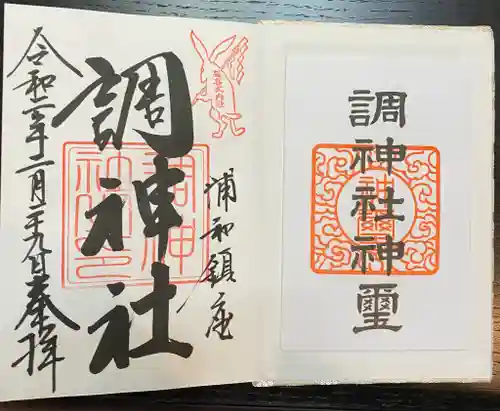 調神社神璽
浦和鎮座
調神社
令和二年二月二十九日奉拝